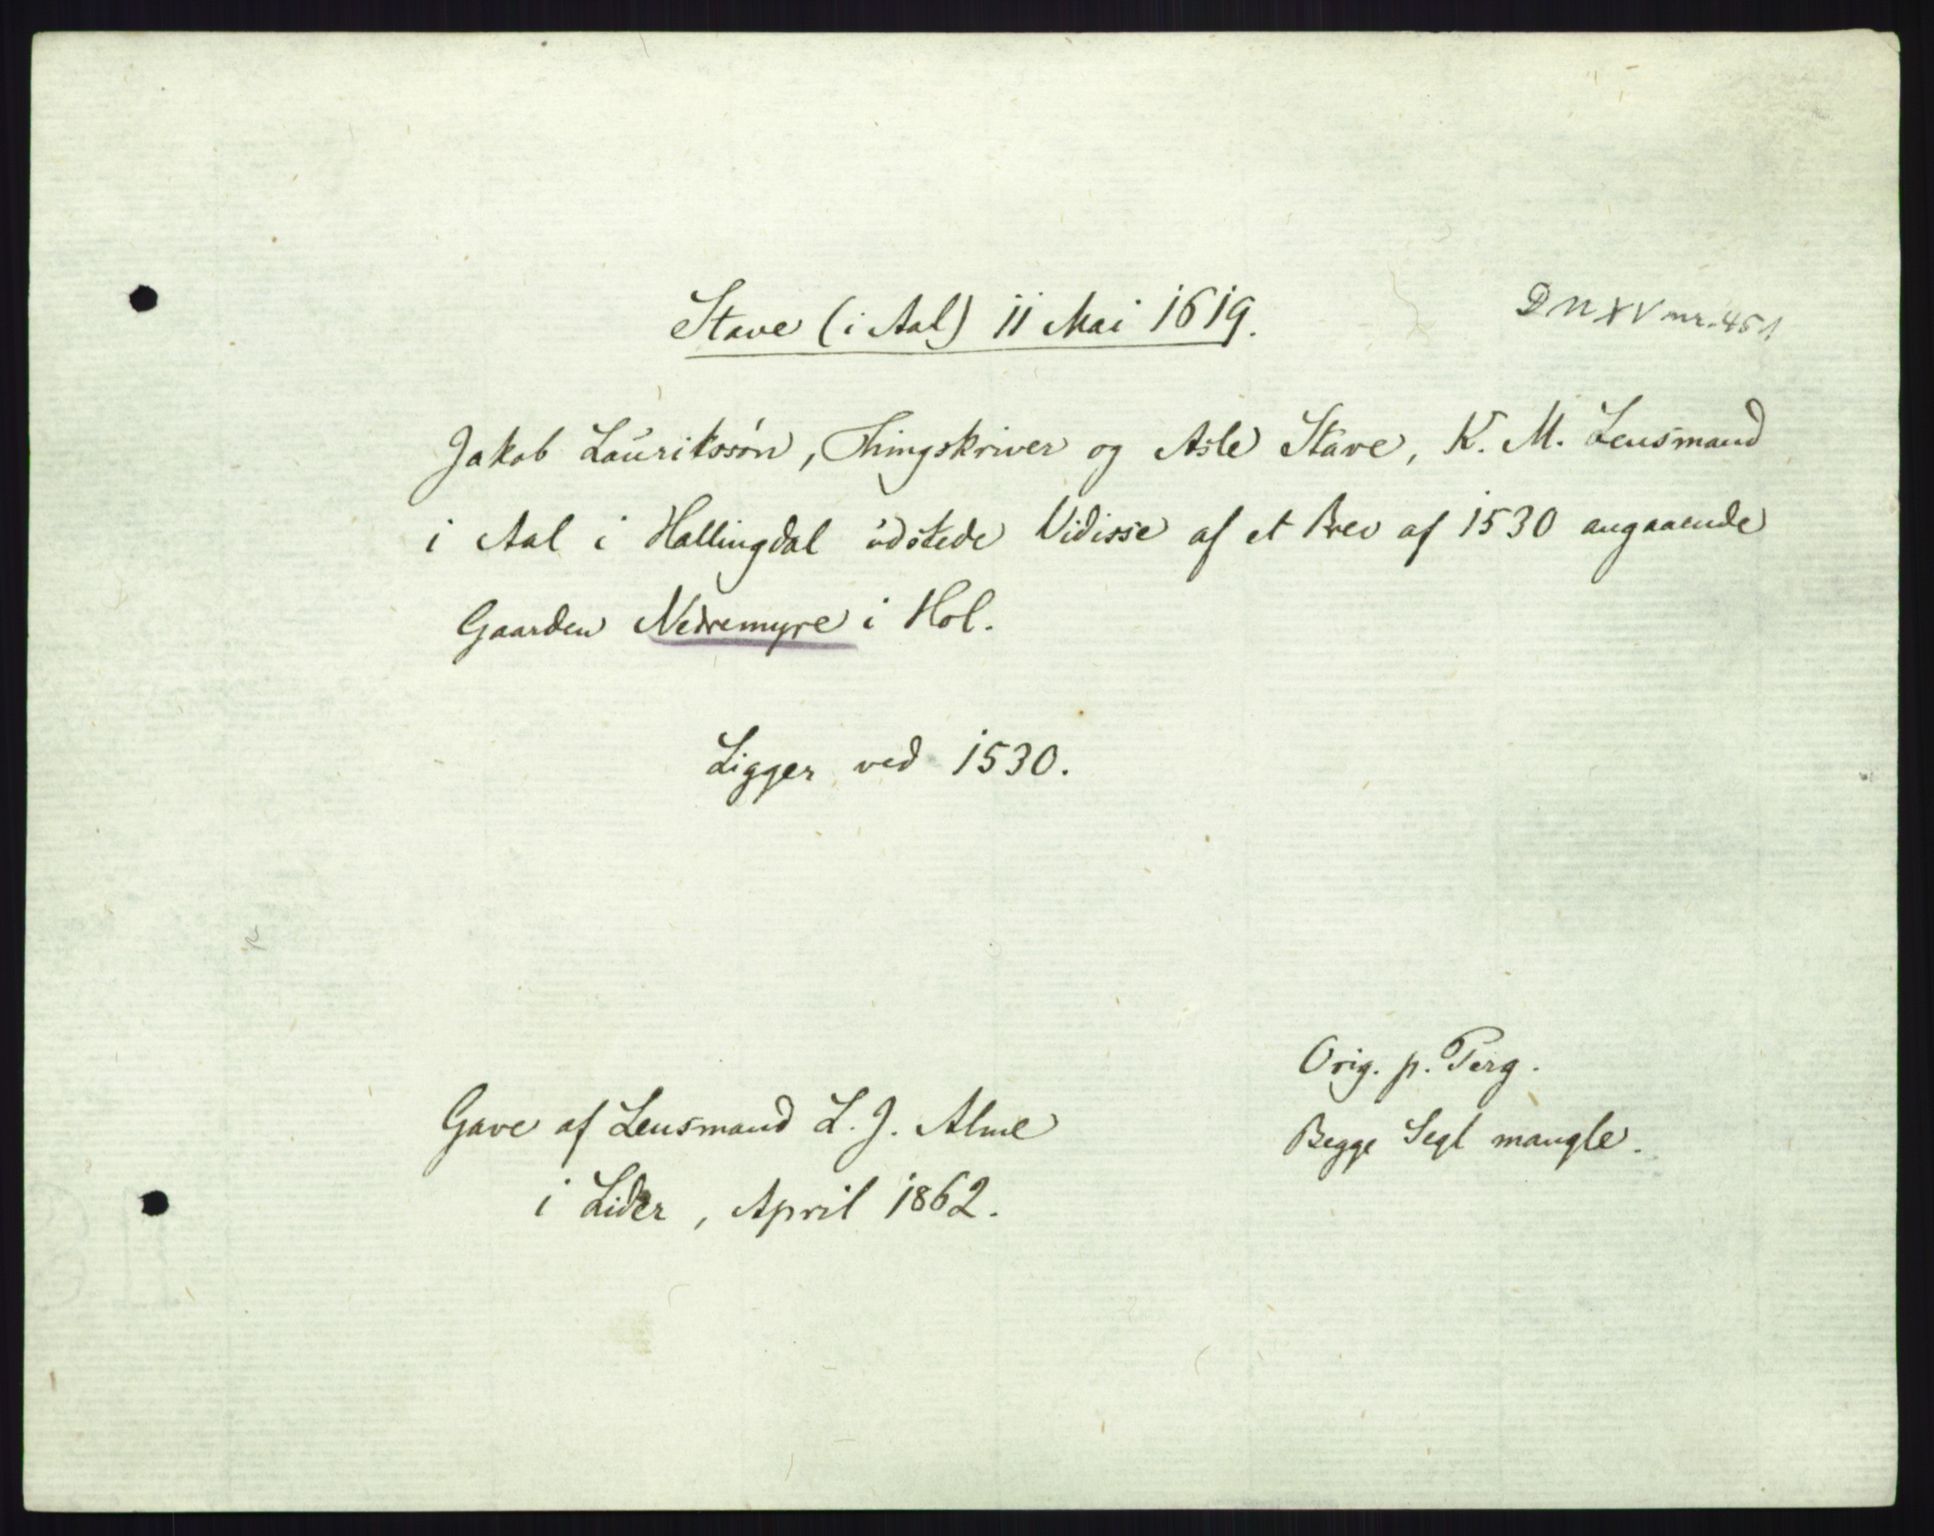 Stave (i Aal) 11 Mai 1619.
DN XV nr. 451
Jakob Laurikssøn, Thingskriver og Asle Stave, K. M. Lensmand
i Aal i Hallingdal udstede Vidisse af et Brev af 1530 angaaende
Gaarden Nedremyre i Hol.
Ligger ved 1530.
Orig. p. Perg.
Begge Segl mangle.
Gave af Lensmand L. J. Alme
i Lider, April 1862.